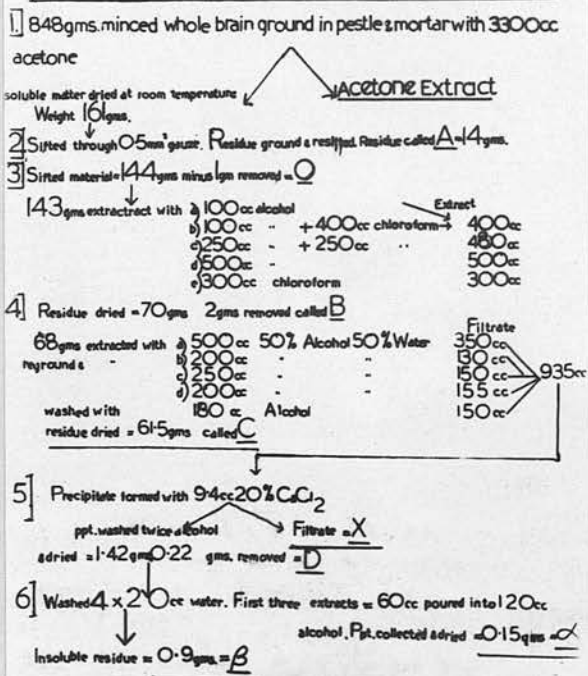 1] 848gms. minced whole brain ground in pestle & mortar with 3300cc
acetone
soluble matter dried at room temperature
Acetone Extract
Weight 161gms.
2] Sifted through 0.5mm² gauze. Residue ground & resifted. Residue called A = 14gms.
3] Sifted material = 144gms minus 1gm removed = O
Extract
143gms extractract with a) 100cc alcohol
b) 100cc " + 400cc chloroform → 400cc
c) 250cc " + 250cc " 480cc
d) 500cc " 500cc
e) 300cc chloroform 300cc
4] Residue dried = 70gms 2gms removed called B
Filtrate
68gms extracted with a) 500cc 50% Alcohol 50% Water 350cc
reground & " b) 200cc " " 130cc
c) 250cc " " 150cc
d) 200cc " " 155cc
935cc
washed with 180cc Alcohol 150cc
residue dried = 61.5gms called C
5] Precipitate formed with 9.4cc 20% CaCl2
ppt. washed twice alcohol
Filtrate = X
& dried = 1.42gms 0.22 gms. removed = D
6] Washed 4 x 20cc water. First three extracts = 60cc poured into 120cc
alcohol. Ppt. collected & dried = 0.15gms = α
Insoluble residue = 0.9gms. = β